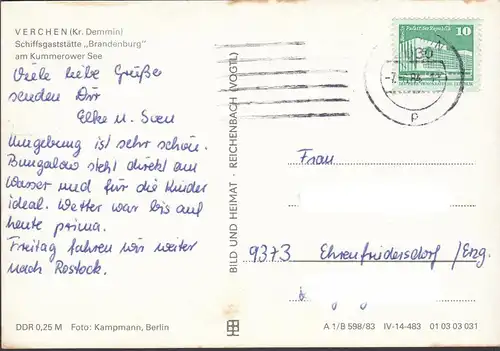 VERCHEN (Kr. Demmin)
Schiffsgaststätte „Brandenburg"
am Kummerower See
Viele liebe Grüße
senden Dir
Elke u. Sven
Umgebung ist sehr schön.
Bungalow steht direkt am
Wasser und für die Kinder
ideal. Wetter war bis auf
heute prima.
Freitag fahren wir weiter
nach Rostock.
DDR 0,25 M Foto: Kampmann, Berlin
BILD UND HEIMAT · REICHENBACH (VOGTL)
10
p
Frau
9373 Ehrenfriedersdorf / Erzg.
A 1/B 598/83 IV-14-483 01 03 03 031